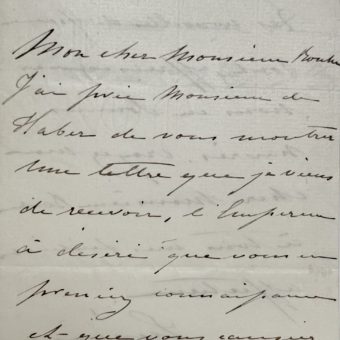 Mon cher Monsieur Rouher
J'ai prié Monsieur de
Haber de vous montrer
une lettre que je viens
de recevoir, l'Empereur
à désiré que vous en
preniez connaissance
et que vous